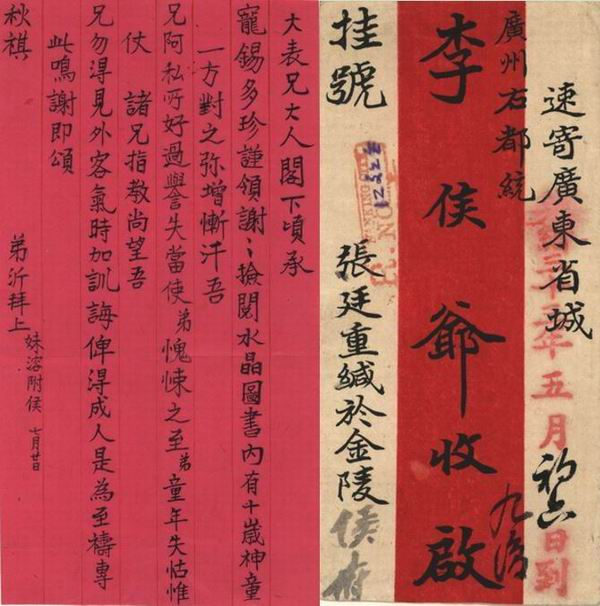 速寄廣東省城
年五月初六日到
廣州右都統
李侯爺收啟
挂號
張廷重緘於金陵侯府
大表兄大人閣下頃承
寵錫多珍謹領謝〻撿閱水晶圖書內有千歲神童
一方對之弥增慚汗吾
兄阿私所好過譽失當使弟愧悚之至弟童年失怙惟
仗 諸兄指教尚望吾
兄勿得見外客氣時加訓誨俾得成人是為至禱專
此鳴謝即頌
秋祺
弟沂拜上
妹溶附侯 七月廿日